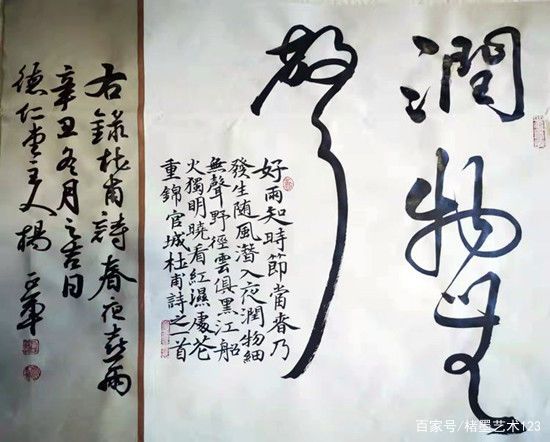 潤物無
聲
好雨知時節當春乃
發生随風潛入夜潤物細
無聲野徑雲俱黑江船
火獨明曉看紅濕處花
重錦官城杜甫詩之一首
右錄杜甫詩春夜喜雨
辛丑冬月之吉日
德仁堂主人楊正華
百家号/楮墨艺术123